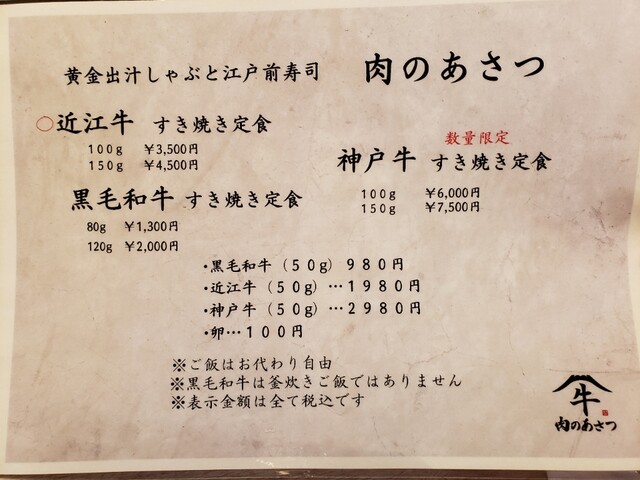 黄金出汁しゃぶと江戸前寿司 肉のあさつ
○近江牛 すき焼き定食
100g ¥3,500円
150g ¥4,500円
数量限定
神戸牛 すき焼き定食
100g ¥6,000円
150g ¥7,500円
黒毛和牛 すき焼き定食
80g ¥1,300円
120g ¥2,000円
・黒毛和牛（50g）980円
・近江牛（50g）…1980円
・神戸牛（50g）…2980円
・卵…100円
※ご飯はお代わり自由
※黒毛和牛は釜炊きご飯ではありません
※表示金額は全て税込です
牛
肉のあさつ